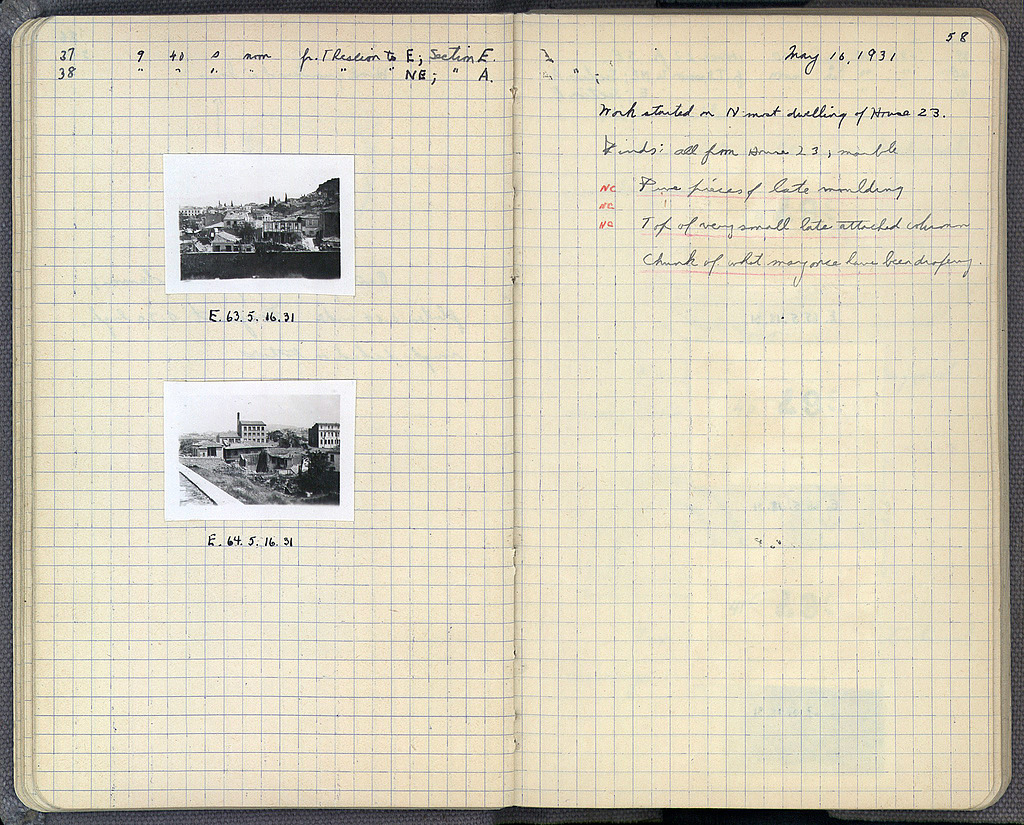 37 9 40 s noon fr. Theseion to E; Section E.
38 " " " " " " NE; " A.
E. 63. 5. 16. 31
E. 64. 5. 16. 31
58
May 16, 1931
Work started on N most dwelling of House 23.
Finds: all from House 23, marble
NC Five pieces of late moulding
NC
NC Top of very small late attached column
Chunk of what may once have been drapery.